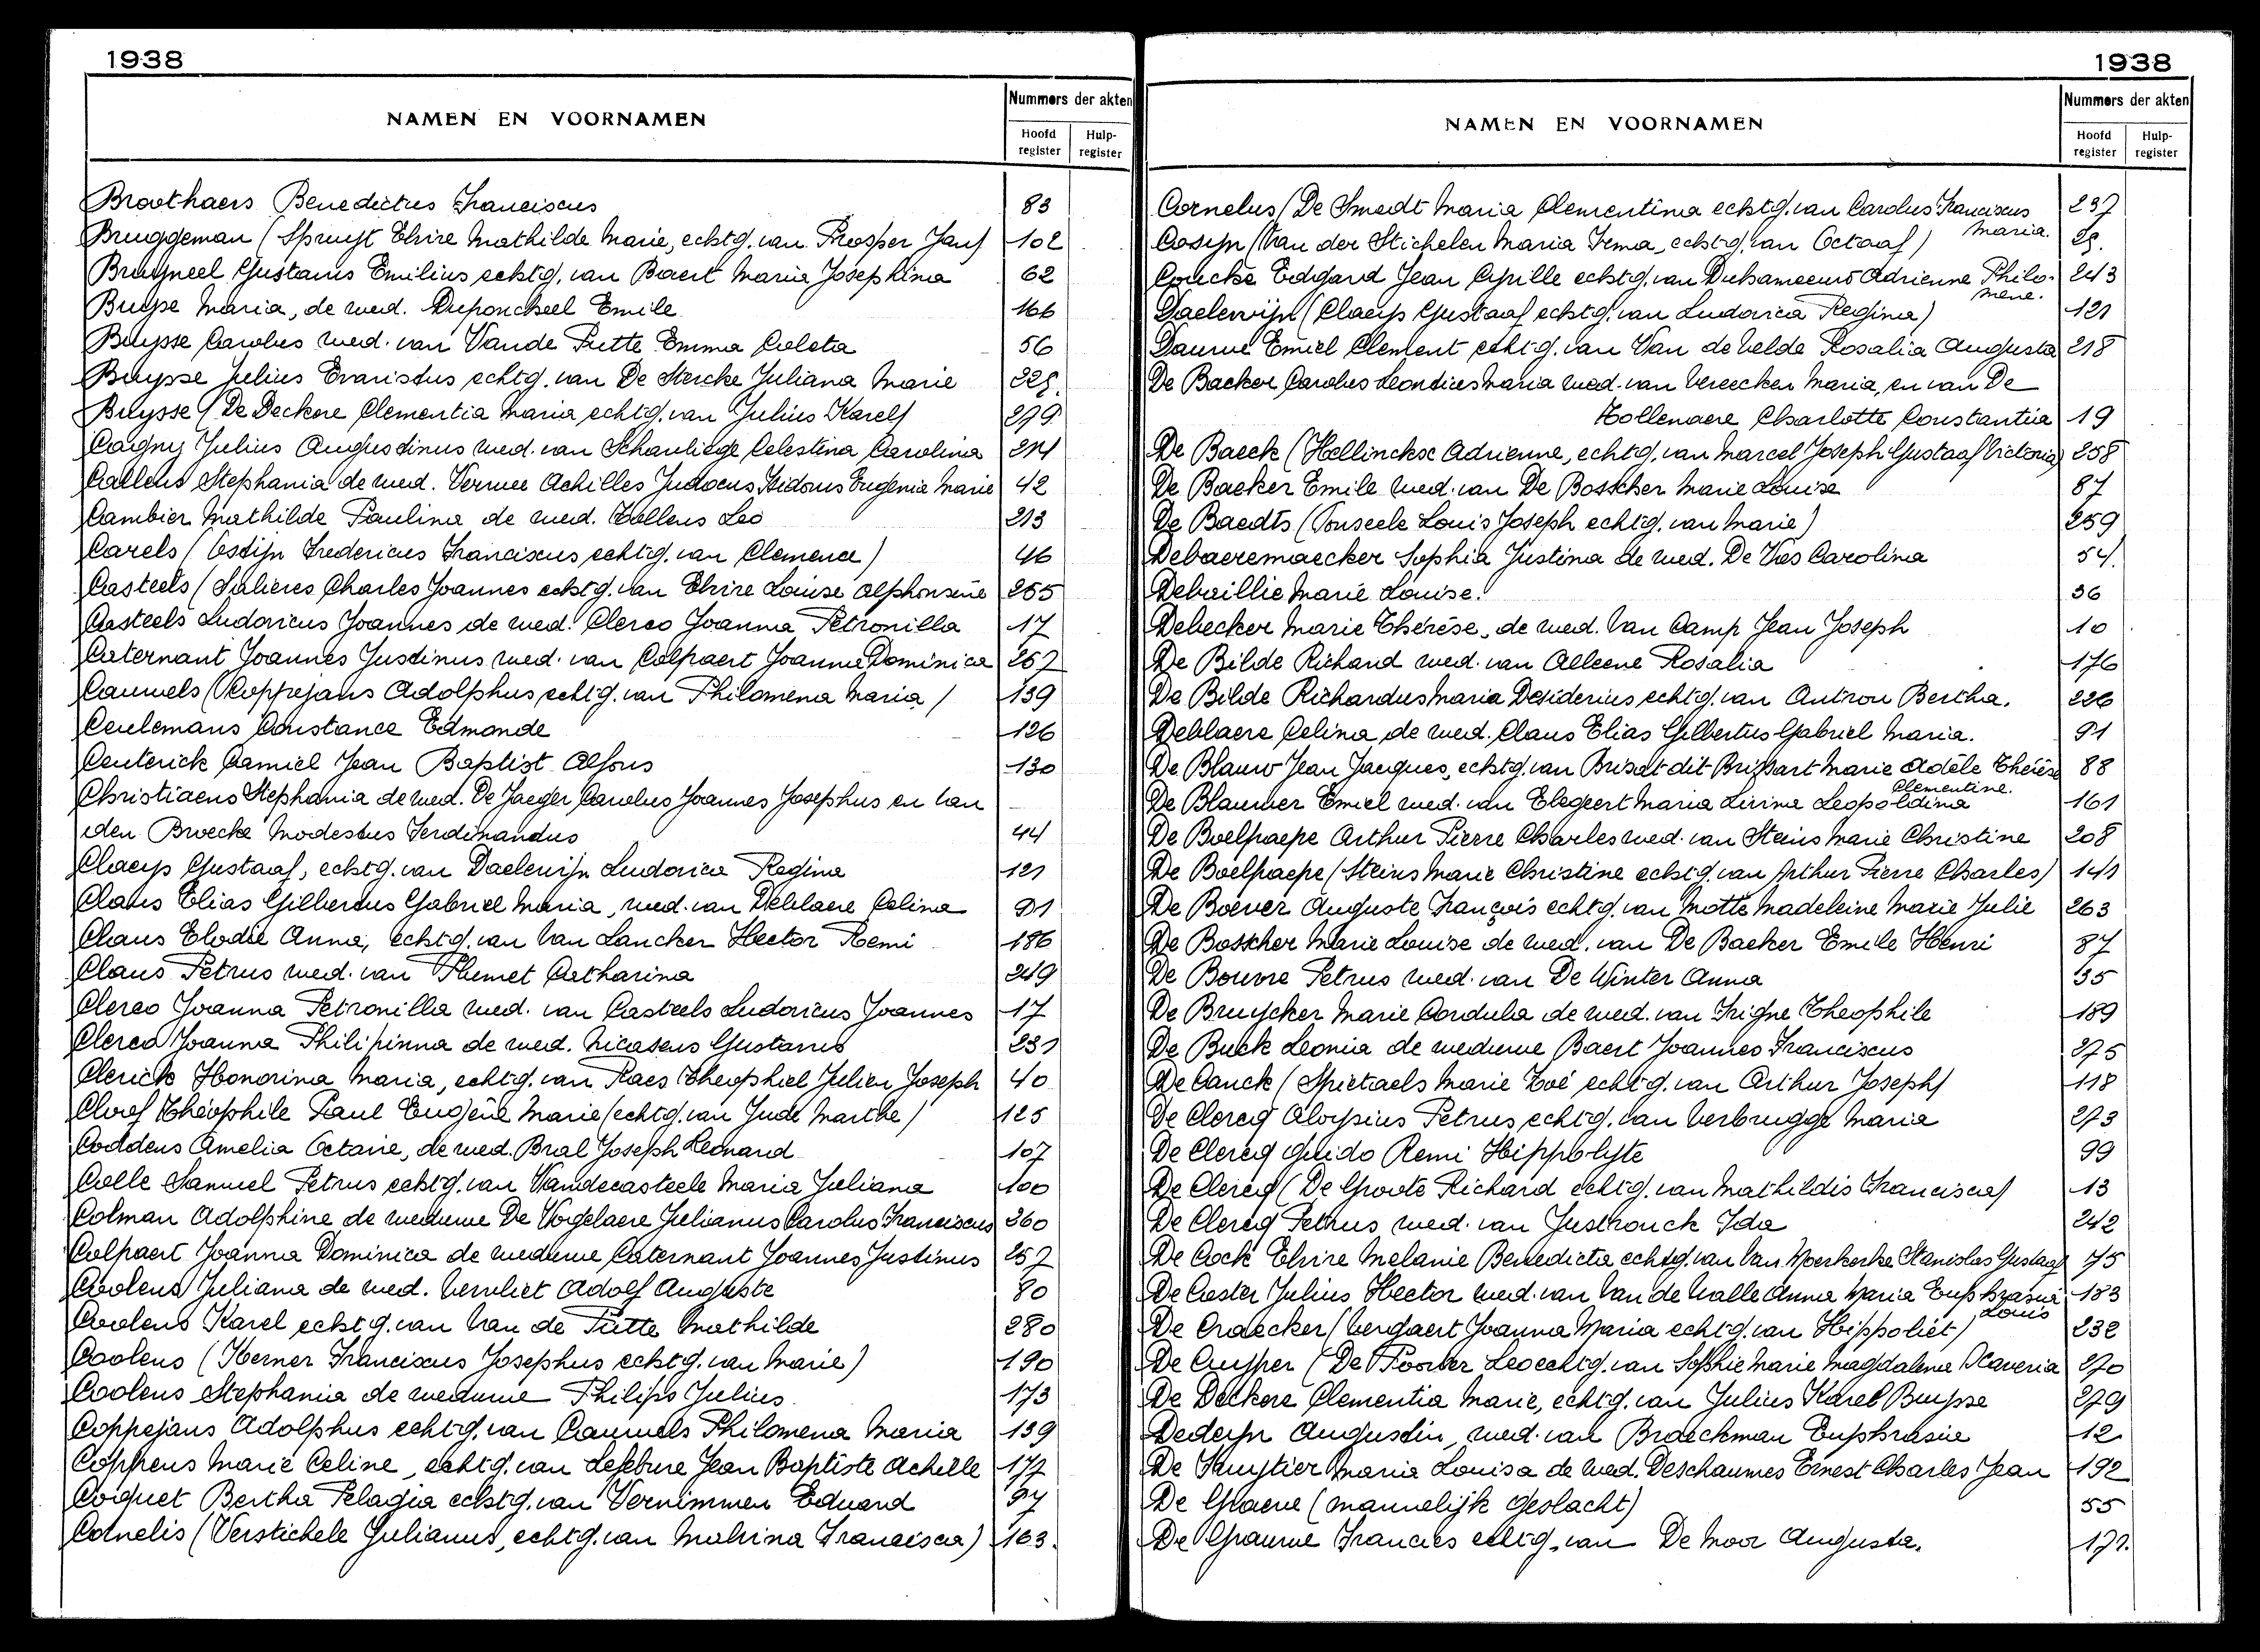 1938
NAMEN EN VOORNAMEN
Nummers der akten
Hoofd register
Hulp-register
Broothaers Benedictus Franciscus 83
Bruggeman (Spruyt Elvire Mathilde Marie, echtg. van Prosper Jan) 102
Bruyneel Gustavus Emilius echtg. van Baert Maria Josephina 62
Buyse Maria, de wed. Duponcheel Emile 166
Buysse Carolus wed. van Vande Putte Emma Coleta 56
Buysse Julius Evaristus echtg. van De Stercke Juliana Marie
Buysse (De Deckere Clementia Maria echtg. van Julius Karel) 279
Cagny Julius Augustinus wed. van Celestina Carolina 214
Callens Stephania de wed. Achilles Judocus Isidorus Eugenia Marie 42
Cambier Mathilde Paulina de wed. Leo 213
Carels (Ostijn Fredericus Franciscus echtg. van Clemence) 46
Casteels (Salières Charles Joannes echtg. van Elvire Louise Alphonsine 265
Casteels Ludovicus Joannes de wed. Clerco Joanna Petronilla 17
Caternant Joannes Justinus wed. van Colpaert Joanna Dominica 257
Cauwels (Coppejans Adolphus echtg. van Philomena Maria) 139
Ceulemans Constance Edmonde 126
Ceuterick Camiel Jean Baptist Alfons 130
Christiaens Stephania de wed. De Jaeger Carolus Joannes Josephus en van
den Broecke Modestus Ferdinandus 44
Claeys Gustaaf, echtg. van Daelewijn Ludovica Regina 121
Claus Elias Gilbertus Gabriel Maria, wed. van Deblaere Celina 91
Claus Elodie Anna, echtg. van Van Lancker Hector Remi 186
Claus Petrus wed. van Catharina 249
Clerco Joanna Petronilla wed. van Casteels Ludovicus Joannes 17
Clerco Joanna Philipinna de wed. Nicasens Gustavus 231
Clerick Honorina Maria, echtg. van Raes Theophiel Julien Joseph 40
Cloef Théophile Paul Eugène Marie (echtg. van Marthe) 125
Coddens Amelia Octavie, de wed. Bral Joseph Leonard 107
Colle Samuel Petrus echtg. van Vandecasteele Maria Juliana 100
Colman Adolphine de weduwe De Vogelaere Julianus Carolus Franciscus 260
Colpaert Joanna Dominica de weduwe Caternant Joannes Justinus 257
Coolens Juliana de wed. Vervliet Adolf Auguste 80
Coolens Karel echtg. van Van de Putte Mathilde 280
Coolens (Kerner Franciscus Josephus echtg. van Marie) 190
Coolens Stephania de weduwe Philips Julius 173
Coppejans Adolphus echtg. van Cauwels Philomena Maria 139
Coppens Marie Celine, echtg. van Lefebure Jean Baptiste Achille 177
Coquet Bertha Pelagia echtg. van Vernimmen Eduard 97
Cornelis (Verstichele Julianus, echtg. van Malvina Francisca) 163.
1938
NAMEN EN VOORNAMEN
Nummers der akten
Hoofd register
Hulp-register
Cornelus (De Smedt Maria Clementina echtg. van Carolus Franciscus 237
Maria.
Cosyn (Van der Stichelen Maria Irma, echtg. van Octaaf)
Coucke Edgard Jean Cyrille echtg. van Duhameeuw Adrienne Philo- 243
mene.
Daelewijn (Claeys Gustaaf echtg. van Ludovica Regina) 121
Dauwe Emiel Clement echtg. van Van de Velde Rosalia Augusta 218
De Backer Carolus Leontius Maria wed. van Vereecken Maria, en van De
Tollenaere Charlotte Constantia 19
De Baeck (Hellinckx Adrienne, echtg. van Marcel Joseph Gustaaf Victoria) 258
De Baeker Emile wed. van De Bosscher Marie Louise 87
De Baedts (Ponseele Louis Joseph echtg. van Marie) 259
Debaeremaecker Sophia Justina de wed. De Vos Carolina 54.
Debaillie Marie Louise. 36
Debecker Marie Thérèse, de wed. Van Camp Jean Joseph 10
De Bilde Richard wed. van Alleene Rosalia 176
De Bilde Richardus Maria Desiderius echtg. van Autron Bertha. 226
Deblaere Celina de wed. Claus Elias Gilbertus Gabriel Maria. 91
De Blauw Jean Jacques, echtg. van Brisart dit Brissart Marie Adèle Thérèse 88
Clementine.
De Blauwer Emiel wed. van Elegeert Maria Livina Leopoldina 161
De Boelpaepe Arthur Pierre Charles wed. van Steins Marie Christine 208
De Boelpaepe (Steins Marie Christine echtg. van Arthur Pierre Charles) 141
De Boever Auguste François echtg. van Motte Madeleine Marie Julie 263
De Bosscher Marie Louise de wed. van De Baeker Emile Henri 87
De Bouvre Petrus wed. van De Winter Anna 35
De Bruycker Marie Cordula de wed. van Frigne Theophile 189
De Buck Leonia de weduwe Baert Joannes Franciscus 275
De Canck (Spietaels Marie Zoé echtg. van Arthur Joseph) 118
De Clercq Aloysius Petrus echtg. van Verbrugge Maria 273
De Clercq Guido Remi Hippolyte 99
De Clercq (De Groote Richard echtg. van Mathildis Francisca) 13
De Clercq Petrus, wed. van Ida 242
De Cock Elvire Melanie Benedicta echtg. van Van Moerkerke Stanislas Gustaaf 75
De Coster Julius Hector wed. van Van de Walle Anna Maria Euphrasia 183
Louis
De Craecker (Vergaert Joanna Maria echtg. van Hippoliet) 232
De Cuyper (De Poorter Leo echtg. van Sophie Marie Magdalena Xaveria 270
De Deckere Clementia Marie, echtg. van Julius Karel Buysse 279
Dedeyn Augustin, wed. van Braeckman Euphrasie 12
De Fruytier Maria Louisa de wed. Deschaumes Ernest Charles Jean 192
De Graeve (mannelijk geslacht) 55
De Grauwe Francies echtg. van De Moor Augusta.